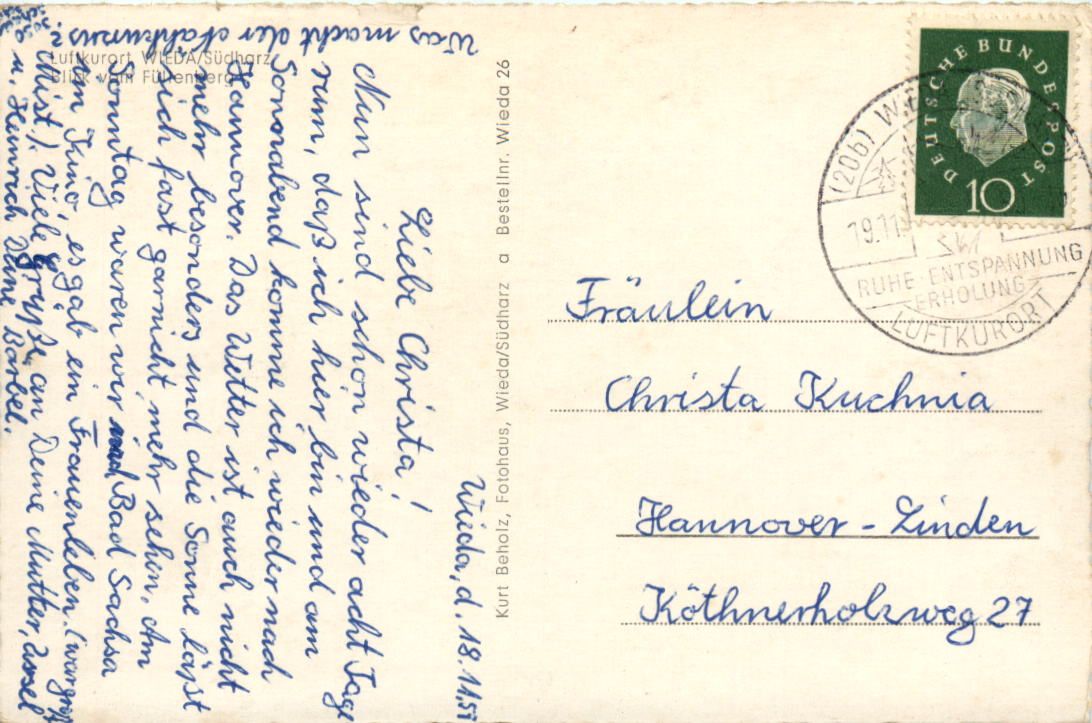 Wieda, d. 18.11.59
Liebe Christa!
Nun sind schon wieder acht Tage
rum, daß ich hier bin und am
Sonnabend komme ich wieder nach
Hannover. Das Wetter ist auch nicht
mehr besonders und die Sonne läßt
sich fast garnicht mehr sehen. Am
Sonntag waren wir in Bad Sachsa
im Kino, es gab ein Frauenleben. (war groß
Mist). Viele Grüße an Deine Mutter, Ursel
u. Heinrich Deine Bärbel.
Was macht der Nähkursus?
Luftkurort WIEDA/Südharz
Blick vom Füllenberg
Kurt Beholz, Fotohaus, Wieda/Südharz a Bestellnr. Wieda 26
DEUTSCHE BUNDESPOST
10
(20b) W
19.11.
RUHE · ENTSPANNUNG
ERHOLUNG
LUFTKURORT
Fräulein
Christa Kuchnia
Hannover - Linden
Köthnerholzweg 27